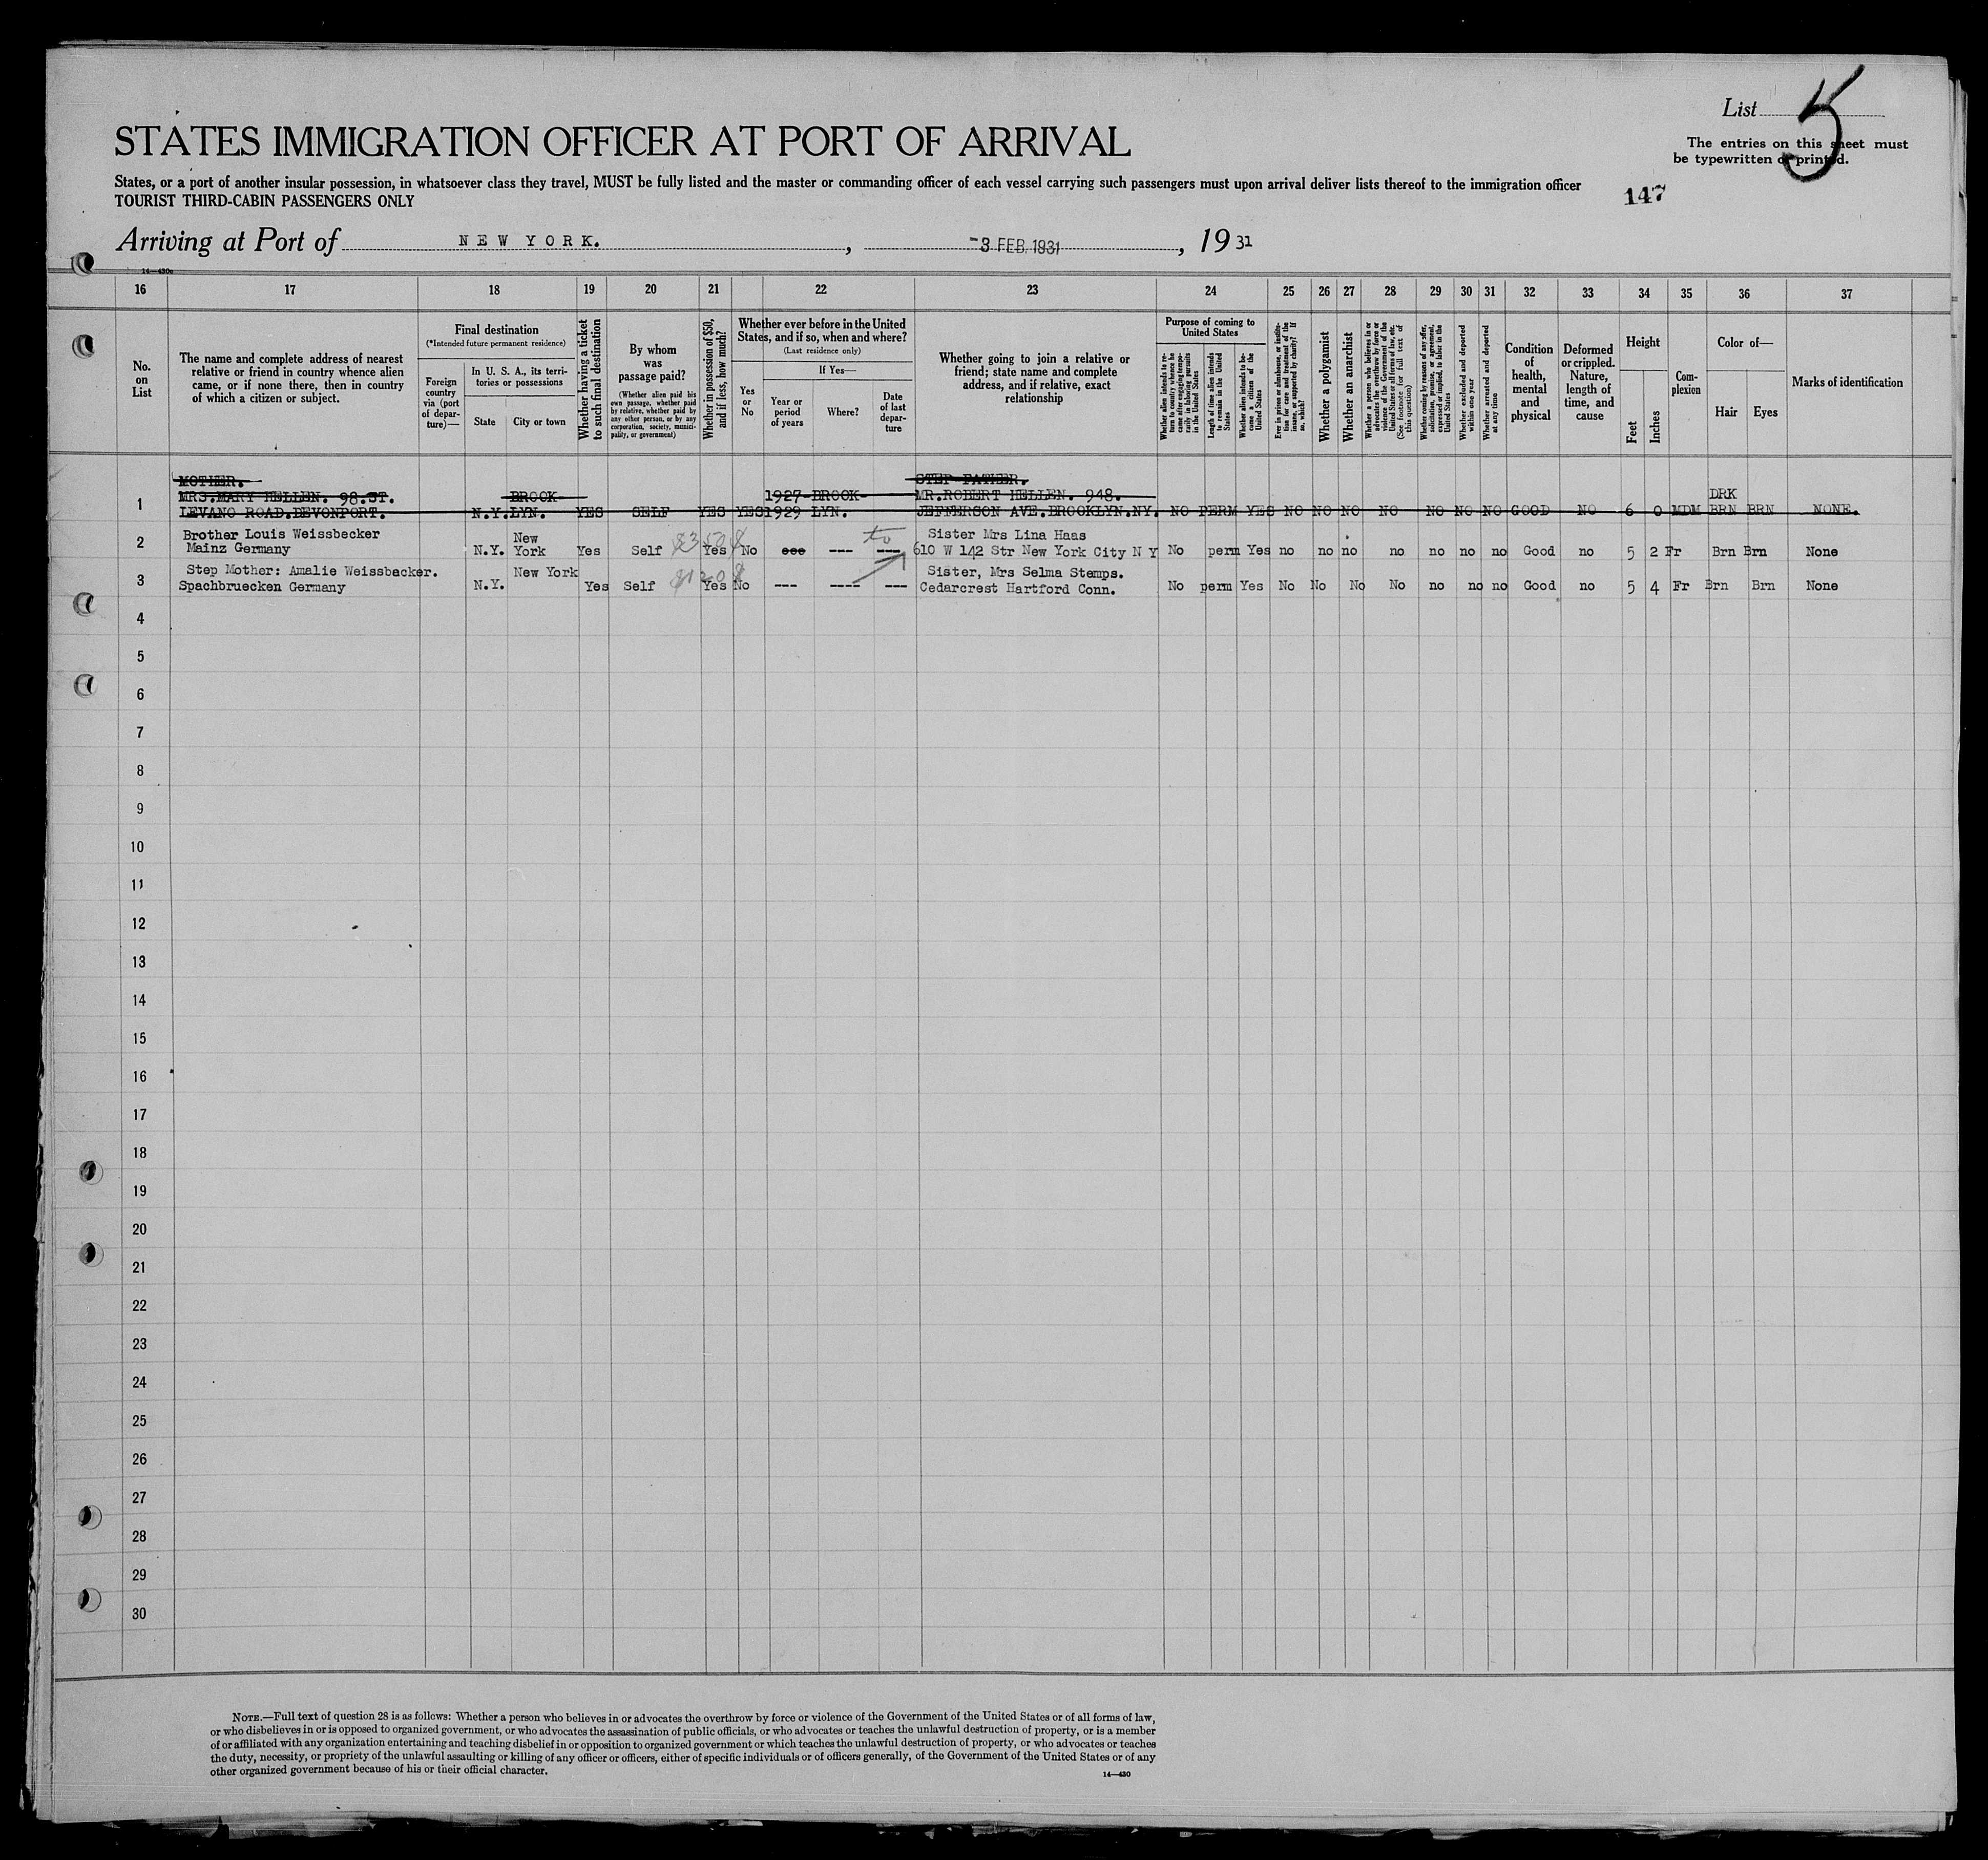 List 5
STATES IMMIGRATION OFFICER AT PORT OF ARRIVAL
The entries on this sheet must
be typewritten or printed.
States, or a port of another insular possession, in whatsoever class they travel, MUST be fully listed and the master or commanding officer of each vessel carrying such passengers must upon arrival deliver lists thereof to the immigration officer
TOURIST THIRD-CABIN PASSENGERS ONLY
147
Arriving at Port of NEW YORK. , -3 FEB. 1931 , 19 31
14—430c
16 17 18 19 20 21 22 23 24 25 26 27 28 29 30 31 32 33 34 35 36 37
No.
on
List
The name and complete address of nearest
relative or friend in country whence alien
came, or if none there, then in country
of which a citizen or subject.
Final destination
(*Intended future permanent residence)
Foreign
country
via (port
of depar-
ture)—
In U. S. A., its terri-
tories or possessions
State
City or town
Whether having a ticket
to such final destination
By whom
was
passage paid?
(Whether alien paid his
own passage, whether paid
by relative, whether paid by
any other person, or by any
corporation, society, munici-
pality, or government)
Whether in possession of $50,
and if less, how much?
Whether ever before in the United
States, and if so, when and where?
(Last residence only)
Yes
or
No
If Yes—
Year or
period
of years
Where?
Date
of last
depar-
ture
Whether going to join a relative or
friend; state name and complete
address, and if relative, exact
relationship
Purpose of coming to
United States
Whether alien intends to re-
turn to country whence he
came after engaging tempo-
rarily in laboring pursuits
in the United States
Length of time alien intends
to remain in the United
States
Whether alien intends to be-
come a citizen of the
United States
Ever in prison or almshouse, or institu-
tion for care and treatment of the
insane, or supported by charity? If
so, which?
Whether a polygamist
Whether an anarchist
Whether a person who believes in or
advocates the overthrow by force or
violence of the Government of the
United States or all forms of law, etc.
(See footnote for full text of
this question)
Whether coming by reasons of any offer,
solicitation, promise, or agreement,
expressed or implied, to labor in the
United States
Whether excluded and deported
within one year
Whether arrested and deported
at any time
Condition
of
health,
mental
and
physical
Deformed
or crippled.
Nature,
length of
time, and
cause
Height
Feet
Inches
Com-
plexion
Color of—
Hair
Eyes
Marks of identification
MOTHER. STEP FATHER.
MRS.MARY HELLEN. 98.ST. BROOK 1927-BROOK- MR.ROBERT HELLEN. 948. DRK
1 LEVANO ROAD.DEVONPORT. N.Y. LYN. YES SELF YES YES 1929 LYN. JEFFERSON AVE.BROOKLYN.NY. NO PERM YES NO NO NO NO NO NO NO GOOD NO 6 0 MDM BRN BRN NONE.
Brother Louis Weissbecker New $350 to Sister Mrs Lina Haas
2 Mainz Germany N.Y. York Yes Self Yes No --- --- --- 610 W 142 Str New York City N Y No perm Yes no no no no no no no Good no 5 2 Fr Brn Brn None
Step Mother: Amalie Weissbacker. New York $120 Sister, Mrs Selma Stemps.
3 Spachbruecken Germany N.Y. Yes Self Yes No --- ---- --- Cedarcrest Hartford Conn. No perm Yes No No No No no no no Good no 5 4 Fr Brn Brn None
4
5
6
7
8
9
10
11
12
13
14
15
16
17
18
19
20
21
22
23
24
25
26
27
28
29
30
NOTE.—Full text of question 28 is as follows: Whether a person who believes in or advocates the overthrow by force or violence of the Government of the United States or of all forms of law,
or who disbelieves in or is opposed to organized government, or who advocates the assassination of public officials, or who advocates or teaches the unlawful destruction of property, or is a member
of or affiliated with any organization entertaining and teaching disbelief in or opposition to organized government or which teaches the unlawful destruction of property, or who advocates or teaches
the duty, necessity, or propriety of the unlawful assaulting or killing of any officer or officers, either of specific individuals or of officers generally, of the Government of the United States or of any
other organized government because of his or their official character.
14—430